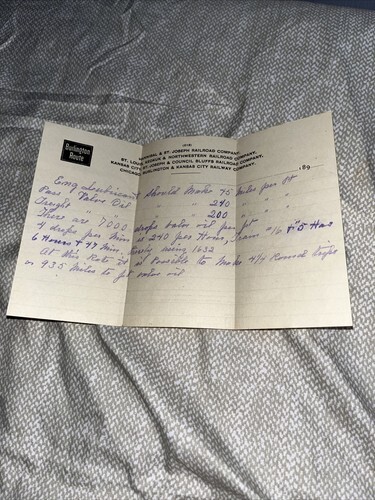 (213)
HANNIBAL & ST. JOSEPH RAILROAD COMPANY,
ST. LOUIS, KEOKUK & NORTHWESTERN RAILROAD COMPANY,
KANSAS CITY, ST. JOSEPH & COUNCIL BLUFFS RAILROAD COMPANY,
CHICAGO, BURLINGTON & KANSAS CITY RAILWAY COMPANY.
Burlington
Route
189
Eng Lubricant Should Make 75 Miles per pt
Pass " Valve Oil " " 240 " " "
Freight " " " " 200 " " "
There are 7000 drops valve oil per pt
4 drops per Min is 240 per Hour, Train #16 is 5 Hours
6 Hours & 47 Min using 1632
At this Rate it is Possible to Make 4 1/4 Round trips
or 935 Miles to pt valve oil